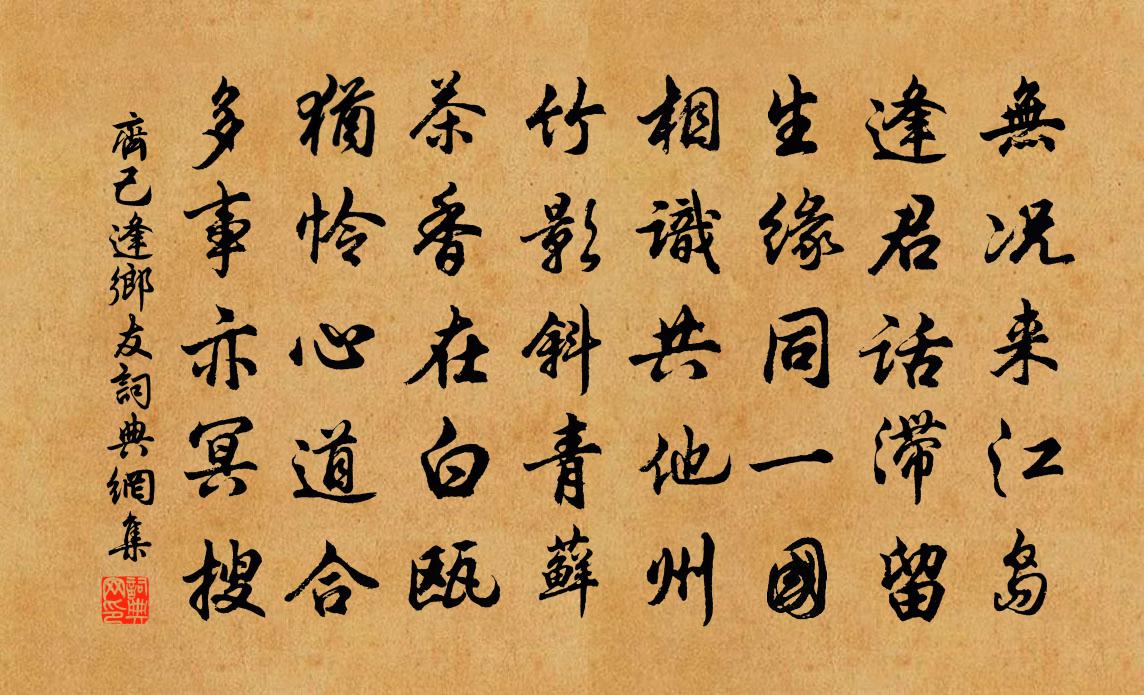 無況来江島
逢君話滯留
生緣同一國
相識共他州
竹影斜青蘚
茶香在白甌
猶怜心道合
多事亦冥搜
齊己逢鄉友詞典網集
詞典网印